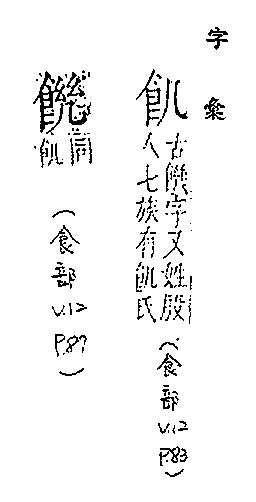 字彙
飢
古饑字又姓殷
人七族有飢氏
(食部 v.12 P.83)
同
飢
(食部 v.12 P.87)